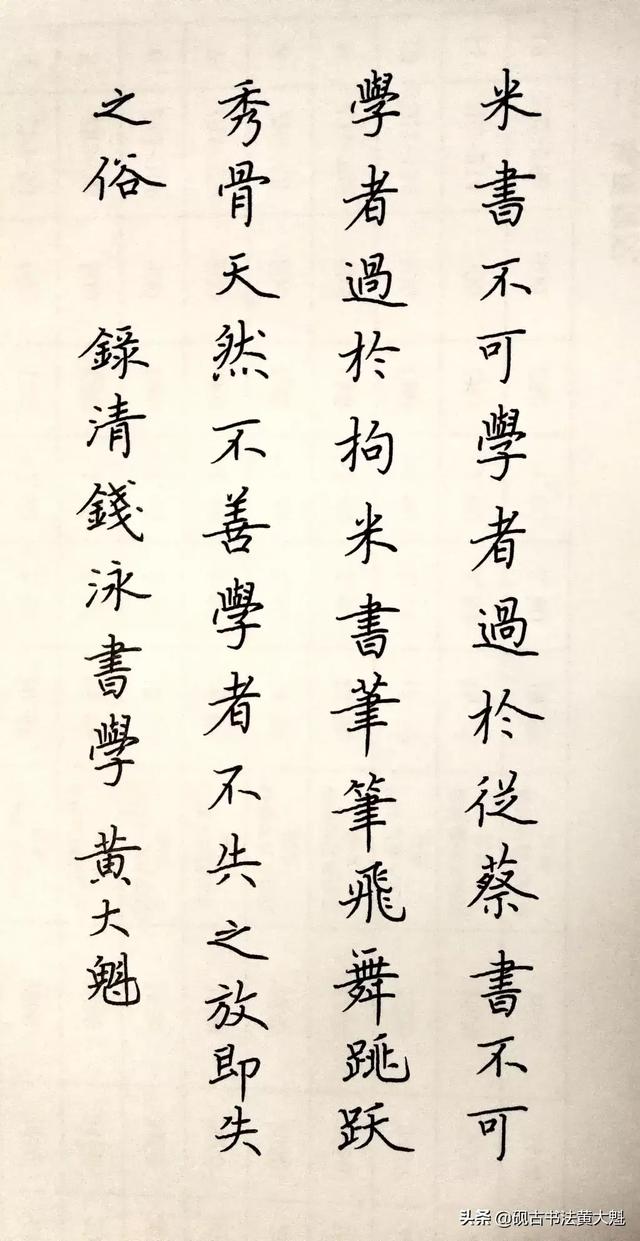 米書不可學者過於從蔡書不可
學者過於拘米書筆筆飛舞跳跃
秀骨天然不善學者不失之放即失
之俗 錄清錢泳書學 黄大魁
头条@砚古书法黄大魁